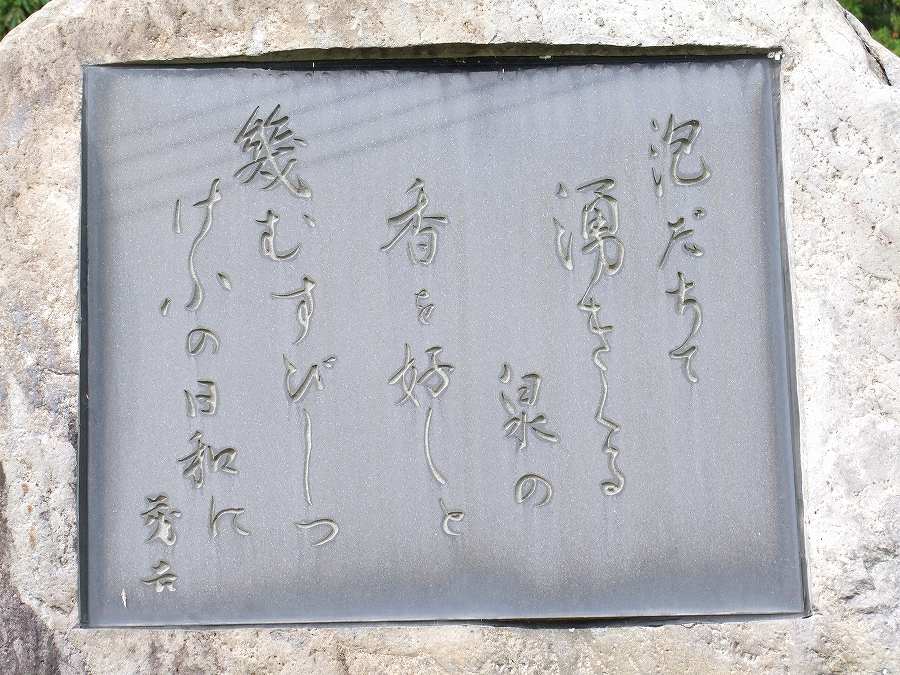 泡だちて
湧きくる
泉の
香を好しと
幾むすびしつ
けふの日和に
秀吉